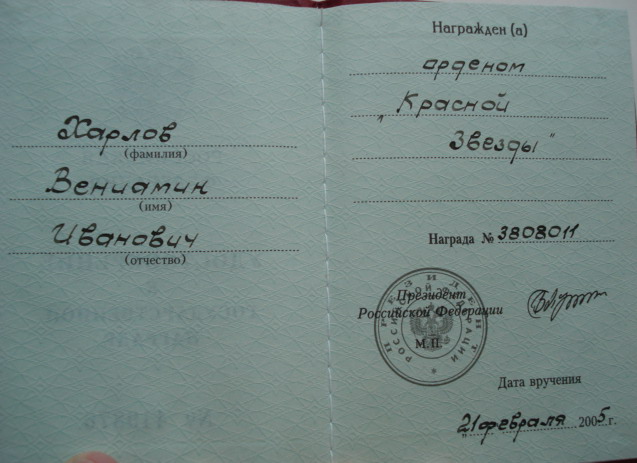 Харлов
(фамилия)
Вениамин
(имя)
Иванович
(отчество)
Награжден (а)
орденом
„Красной
Звезды"
Награда № 3808011
Президент
Российской Федерации
М.П.
ПРЕЗИДЕНТ
РОССИЙСКОЙ ФЕДЕРАЦИИ
Дата вручения
„21 февраля 2005 г.